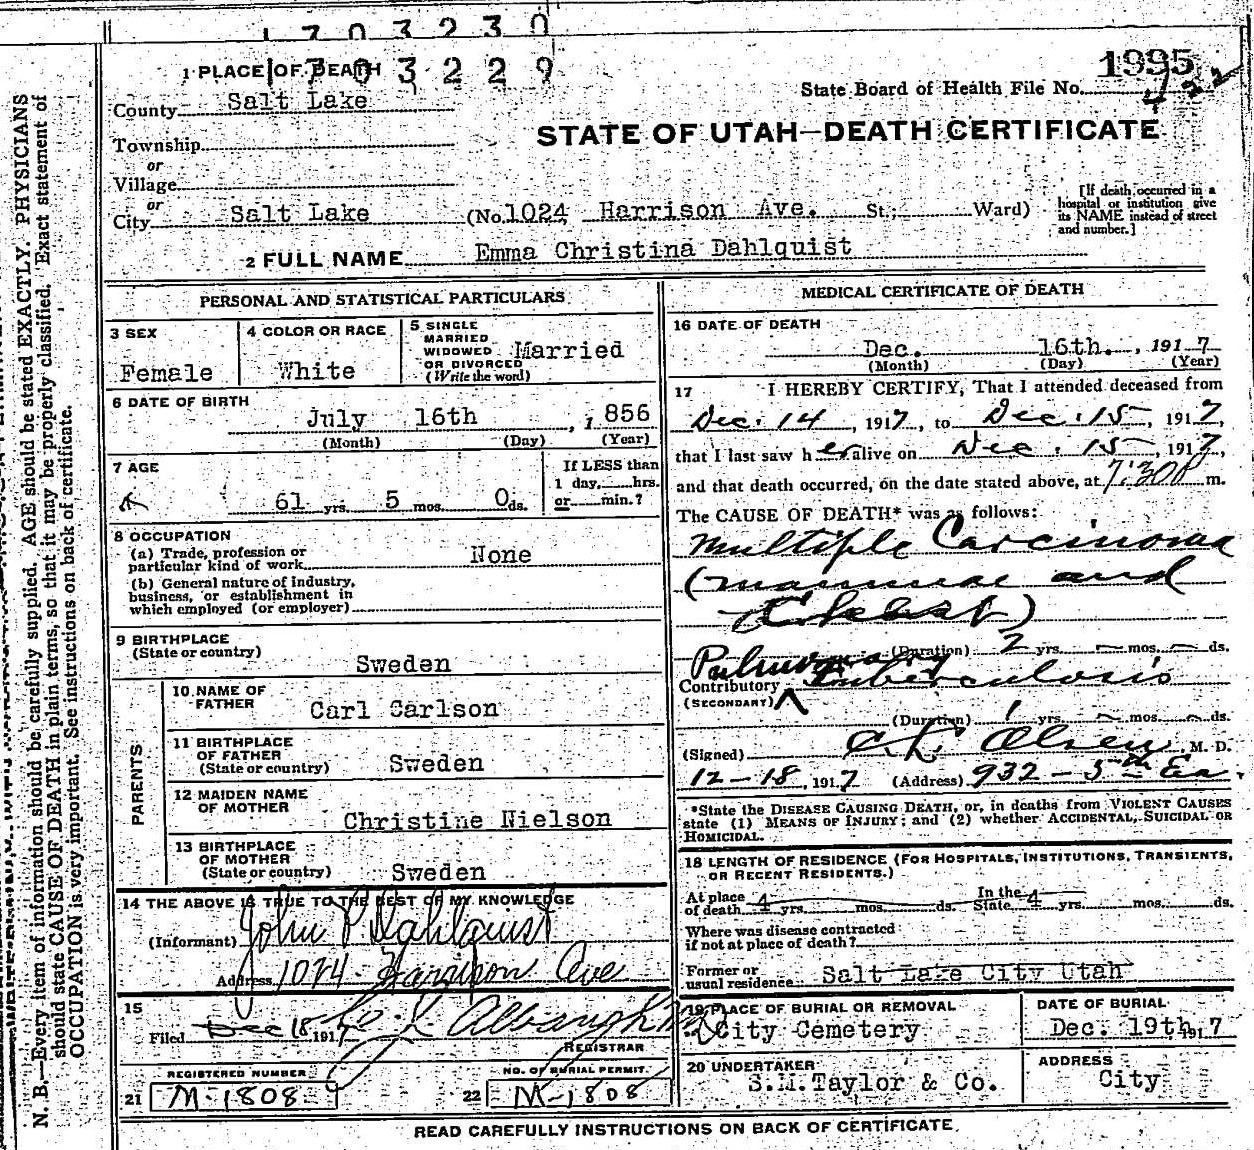 1 7 0 3 2 3 0
1 7 0 3 2 2 9
1995
1 PLACE OF DEATH
State Board of Health File No.
County Salt Lake
STATE OF UTAH—DEATH CERTIFICATE
Township
or
Village
or
City Salt Lake (No. 1024 Harrison Ave. St.; Ward)
[If death occurred in a hospital or institution give its NAME instead of street and number.]
2 FULL NAME Emma Christina Dahlquist
PERSONAL AND STATISTICAL PARTICULARS
3 SEX
Female
4 COLOR OR RACE
White
5 SINGLE
MARRIED
WIDOWED
OR DIVORCED
(Write the word)
Married
6 DATE OF BIRTH
July 16th, 1856
(Month) (Day) (Year)
7 AGE
61 yrs. 5 mos. 0 ds.
If LESS than
1 day, hrs.
or min.?
8 OCCUPATION
(a) Trade, profession or
particular kind of work None
(b) General nature of industry,
business, or establishment in
which employed (or employer)
9 BIRTHPLACE
(State or country)
Sweden
PARENTS
10 NAME OF
FATHER
Carl Carlson
11 BIRTHPLACE
OF FATHER
(State or country) Sweden
12 MAIDEN NAME
OF MOTHER
Christine Nielson
13 BIRTHPLACE
OF MOTHER
(State or country) Sweden
14 THE ABOVE IS TRUE TO THE BEST OF MY KNOWLEDGE
(Informant) John P Dahlquist
Address 1024 Harrison Ave
15
Filed Dec 18 1917
REGISTRAR
REGISTERED NUMBER
21 M-1808
NO. OF BURIAL PERMIT
22 M-1808
MEDICAL CERTIFICATE OF DEATH
16 DATE OF DEATH
Dec. 16th., 1917
(Month) (Day) (Year)
17 I HEREBY CERTIFY, That I attended deceased from
Dec. 14, 1917, to Dec. 15, 1917,
that I last saw her alive on Dec. 15, 1917,
and that death occurred, on the date stated above, at 7:30P m.
The CAUSE OF DEATH* was as follows:
Multiple Carcinoma
(mammae and
Chest)
(Duration) 2 yrs. — mos. — ds.
Pulmonary
Contributory Tuberculosis
(SECONDARY)
(Duration) 1 yrs. — mos. — ds.
(Signed) C. L. Olsen, M. D.
12-18, 1917 (Address) 932 - 5th Ea.
*State the DISEASE CAUSING DEATH, or, in deaths from VIOLENT CAUSES
state (1) MEANS OF INJURY; and (2) whether ACCIDENTAL, SUICIDAL OR
HOMICIDAL.
18 LENGTH OF RESIDENCE (FOR HOSPITALS, INSTITUTIONS, TRANSIENTS,
OR RECENT RESIDENTS.)
At place In the
of death 4 yrs. mos. ds. State 4 yrs. mos. ds.
Where was disease contracted
if not at place of death?
Former or
usual residence Salt Lake City Utah
19 PLACE OF BURIAL OR REMOVAL
City Cemetery
DATE OF BURIAL
Dec. 19th, 1917
20 UNDERTAKER
S.M.Taylor & Co.
ADDRESS
City
READ CAREFULLY INSTRUCTIONS ON BACK OF CERTIFICATE.
N. B.—Every item of information should be carefully supplied. AGE should be stated EXACTLY. PHYSICIANS
should state CAUSE OF DEATH in plain terms, so that it may be properly classified. Exact statement of
OCCUPATION is very important. See instructions on back of certificate.